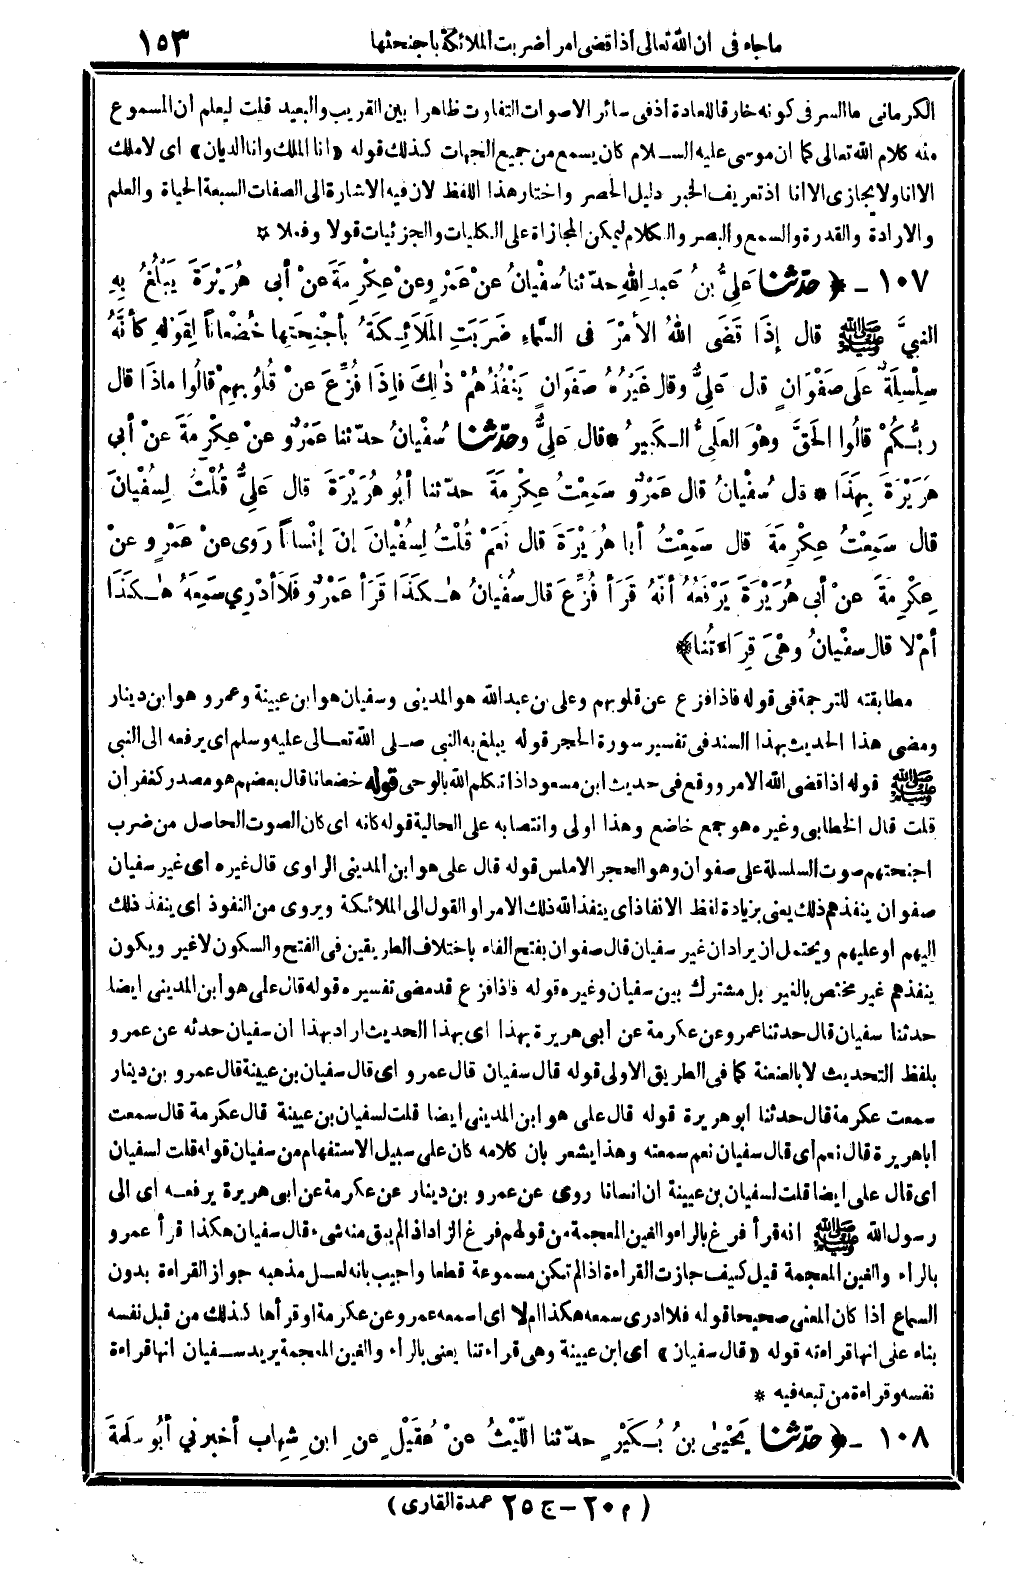 ما جاء في ان الله تعالى اذا قضى امرا ضربت الملائكة باجنحتها ١٥٣
الكرماني ما السر في كونه خارقا للعادة اذ في سائر الاصوات التفاوت ظاهرا بين القريب والبعيد قلت ليعلم أن المسموع
منه كلام الله تعالى كما ان موسى عليه السلام كان يسمع من جميع الجهات كذلك قوله «انا الملك وانا الديان» اى لا ملك
الا انا ولا يجازى الا انا اذ تعريف الخبر دليل الحصر واختار هذا اللفظ لان فيه الاشارة الى الصفات السبعة الحياة والعلم
والارادة والقدرة والسمع والبصر والكلام ليمكن المجازاة على الكليات والجزئيات قولا وفعلا *
١٠٧ - ﴿ حَدَّثَنَا عَلِيُّ بنُ عَبدِ اللهِ حدّثنا سُفْيانُ عنْ عَمْرٍو عنْ عِكْرِمَةَ عنْ أبي هُرَيْرَةَ يَبْلُغُ بِهِ
النبيَّ ﷺ قال إذَا قَضَى اللهُ الأمْرَ فى السَّماءِ ضَرَبَتِ المَلَائِكَةُ بأجْنِحَتِها خُضْعاناً لِقَوْلهِ كأنَّهُ
سِلْسِلَةٌ على صَفْوَانٍ قال عَلِيٌّ وقال غَيْرُهُ صَفَوَانٍ يَنْفُذُهُمْ ذٰلِكَ فإِذَا فُزِّعَ عنْ قُلُوبِهِمْ قالُوا ماذَا قال
رَبُّكُمْ قالُوا الحَقَّ وهْوَ العَلِيُّ الكَبِيرُ * قال عَلِيٌّ وحَدَّثَنا سُفْيانُ حدّثنا عَمْرٌو عنْ عِكْرِمَةَ عنْ أبي
هُرَيْرَةَ بِهَذَا * قال سُفْيانُ قال عَمْرٌو سَمِعْتُ عِكْرِمَةَ حدّثنا أبُو هُرَيْرَةَ قال عَلِيٌّ قُلْتُ لِسُفْيانَ
قال سَمِعْتُ عِكْرِمَةَ قال سَمِعْتُ أبا هُرَيْرَةَ قال نَعَمْ قُلْتُ لِسُفْيانَ إنَّ إنْساناً رَوَى عنْ عَمْرٍو عنْ
عِكْرِمَةَ عنْ أبي هُرَيْرَةَ يَرْفَعُهُ أنَّهُ قَرَأَ فُزِّعَ قال سُفْيانُ هٰكَذَا قَرَأَ عَمْرٌو فَلاَ أدْرِي سَمِعَهُ هٰكَذَا
أمْ لا قال سفْيانُ وهْيَ قِرَاءَتُنا ﴾
مطابقته للترجمة فى قوله فاذا فزع عن قلوبهم وعلى بن عبد الله هو المدينى وسفيان هو ابن عيينة وعمرو هو ابن دينار
ومضى هذا الحديث بهذا السند فى تفسير سورة الحجر قوله يبلغ به النبي صلى الله تعالى عليه وسلم اى يرفعه الى النبي
ﷺ قوله اذا قضى الله الامر ووقع فى حديث ابن مسعود اذا تكلم الله بالوحى قوله خضعانا قال بعضهم هو مصدر كغفران
قلت قال الخطابى وغيره هو جمع خاضع وهذا اولى وانتصابه على الحالية قوله كانه اى كان الصوت الحاصل من ضرب
اجنحتهم صوت السلسلة على صفوان وهو الحجر الاملس قوله قال على هو ابن المدينى الراوى قال غيره اى غير سفيان
صفوان ينفذهم ذلك يعنى بزيادة لفظ الانفاذ اى ينفذ الله ذلك الامر او القول الى الملائكة ويروى من النفوذ اى ينفذ ذلك
اليهم او عليهم ويحتمل ان يراد ان غير سفيان قال صفوان بفتح الفاء باختلاف الطريقين فى الفتح والسكون لا غير ويكون
ينفذهم غير مختص بالغير بل مشترك بين سفيان وغيره قوله فاذا فزع قد مضى تفسيره قوله قال على هو ابن المدينى ايضا
حدثنا سفيان قال حدثنا عمرو عن عكرمة عن أبى هريرة بهذا اى بهذا الحديث اراد بهذا ان سفيان حدثه عن عمرو
بلفظ التحديث لا بالعنعنة كما فى الطريق الاولى قوله قال سفيان قال عمرو اى قال سفيان بن عيينة قال عمرو بن دينار
سمعت عكرمة قال حدثنا ابو هريرة قوله قال على هو ابن المدينى ايضا قلت لسفيان بن عيينة قال عكرمة قال سمعت
أبا هريرة قال نعم أى قال سفيان نعم سمعته وهذا يشعر بان كلامه كان على سبيل الاستفهام من سفيان قوله قلت لسفيان
اى قال على ايضا قلت لسفيان بن عيينة ان انسانا روى عن عمرو بن دينار عن عكرمة عن ابى هريرة يرفعه اى الى
رسول الله ﷺ انه قرأ فرغ بالراء والغين المعجمة من قولهم فرغ الزاد اذا لم يبق منه شىء قال سفيان هكذا قرأ عمرو
بالراء والغين المعجمة قيل كيف جازت القراءة اذا لم تكن مسموعة قطعا واجيب بانه لعل مذهبه جواز القراءة بدون
السماع اذا كان المعنى صحيحا قوله فلا ادرى سمعه هكذا ام لا اى اسمعه عمرو عن عكرمة او قرأها كذلك من قبل نفسه
بناء على انها قراءته قوله «قال سفيان» اى ابن عيينة وهى قراءتنا يعنى بالراء والغين المعجمة يريد سفيان انها قراءة
نفسه وقراءة من تبعه فيه *
١٠٨ - ﴿ حَدَّثَنَا يَحْيٰى بنُ بُكَيْرٍ حدّثنا اللَّيْثُ عنْ عُقَيْلٍ عنِ ابنِ شِهابٍ أخبرني أبُو سلَمَةَ
(م ٢٠ - ج ٢٥ عمدة القارى)